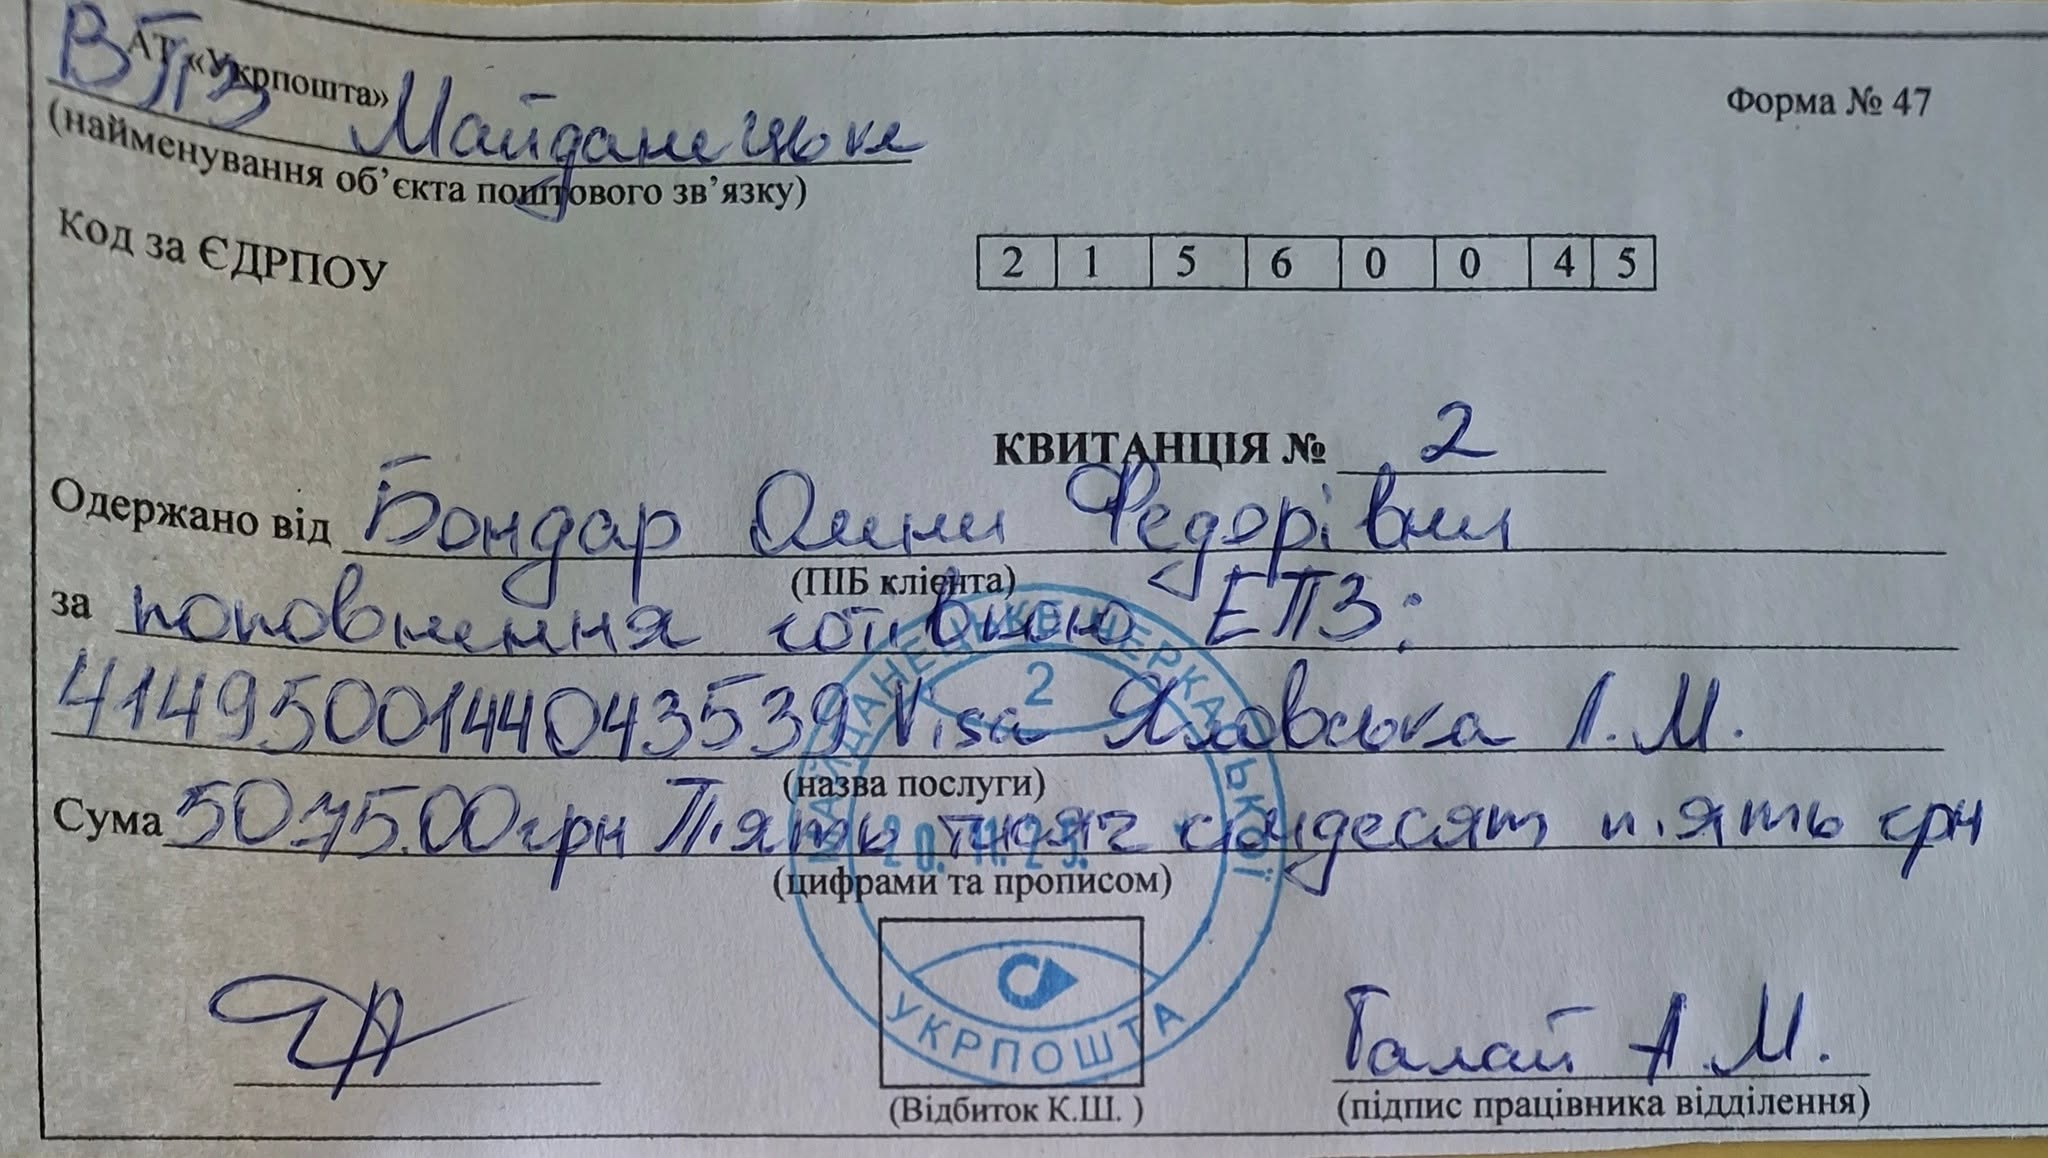 АТ «Укрпошта»
Форма № 47
ВПЗ Майданецьке
(найменування об’єкта поштового зв’язку)
Код за ЄДРПОУ 2 1 5 6 0 0 4 5
КВИТАНЦІЯ № 2
Одержано від Бондар Федорівни
(ПІБ клієнта)
за поповнення готівкою ЕПЗ:
4149500144043539 Visa Яловська Л.М.
(назва послуги)
Сума 5075.00грн П.ять тисяч сімдесят п.ять грн
(цифрами та прописом)
МАЙДАНЕЦЬКЕ ЧЕРКАСЬКОЇ
2
УКРПОШТА
Галай А.М.
(Відбиток К.Ш. ) (підпис працівника відділення)